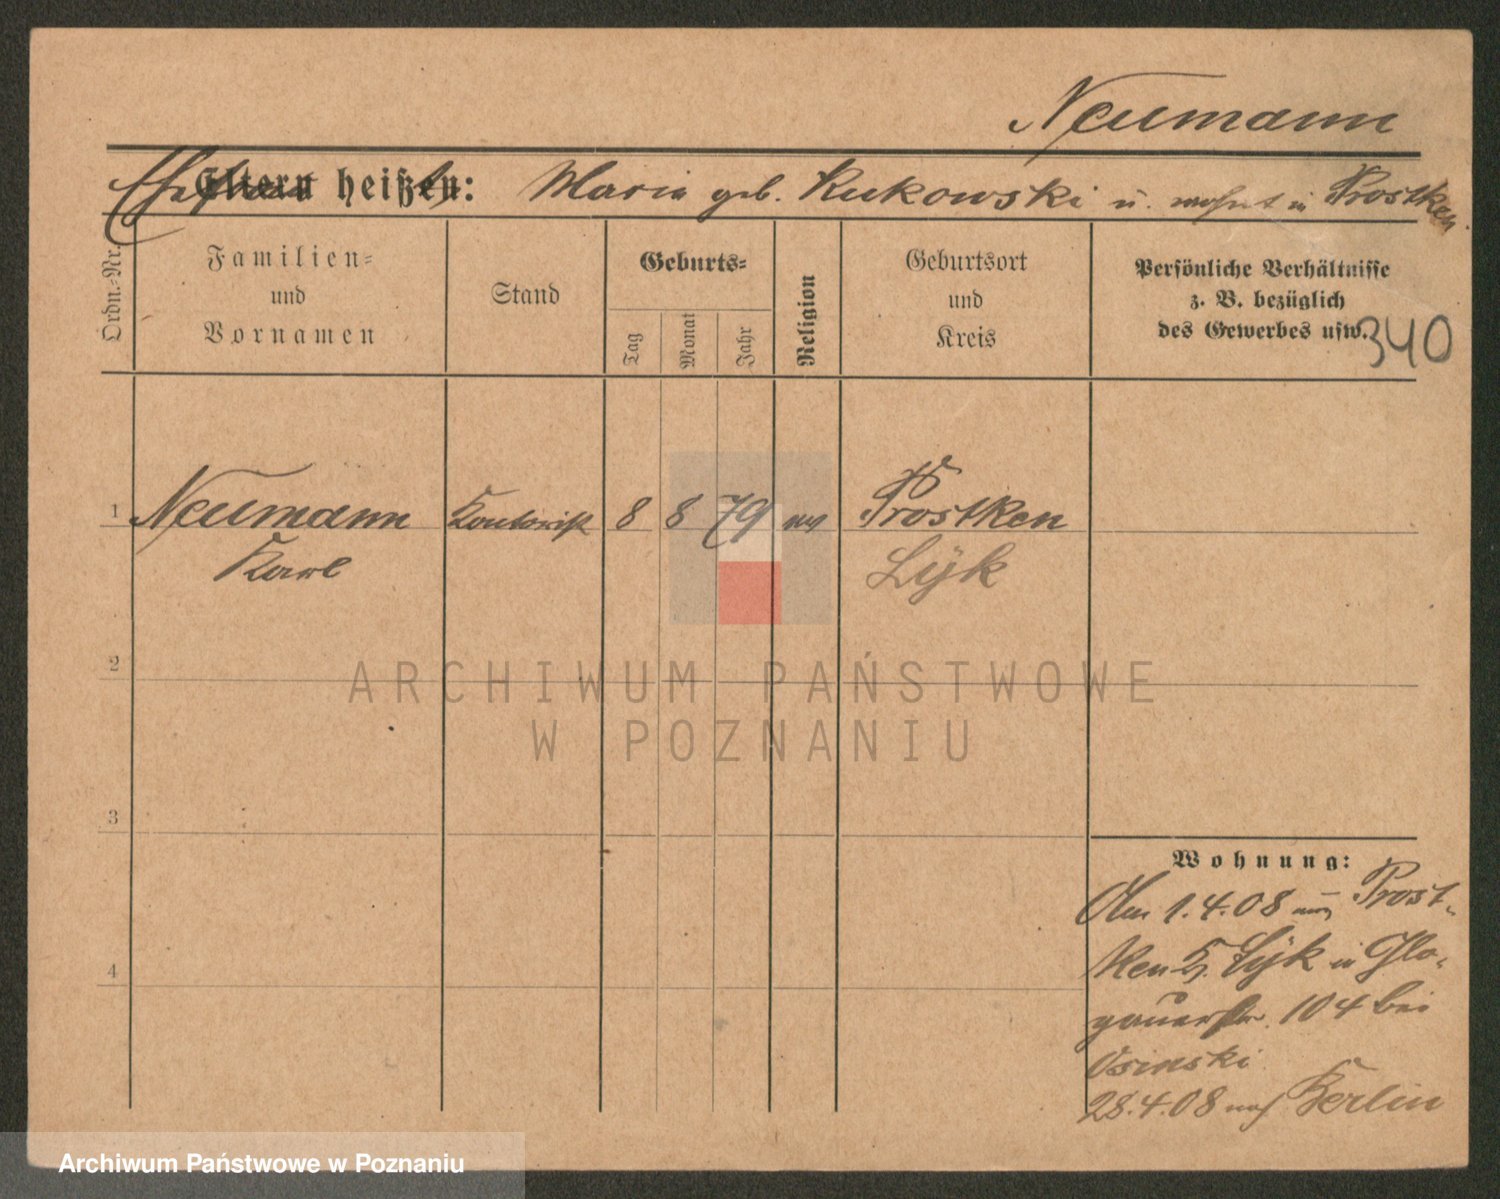 Neumann
Ehefrau heißt: Maria geb. Kukowski u. wohnt in Prostken.
Ordn.-Nr.
Familien-
und
Vornamen
Stand
Geburts-
Tag
Monat
Jahr
Religion
Geburtsort
und
Kreis
Persönliche Verhältnisse
z. B. bezüglich
des Gewerbes usw.
340
1 Neumann Kontorist 8 8 79 ev Prostken
Karl Lÿk
2
3
4
Wohnung:
Am 1.4.08 aus Prost-
ken Kr. Lÿk in Glo-
gauerstr. 104 bei
Osinski
28.4.08 nach Berlin
ARCHIWUM PAŃSTWOWE
W POZNANIU
Archiwum Państwowe w Poznaniu